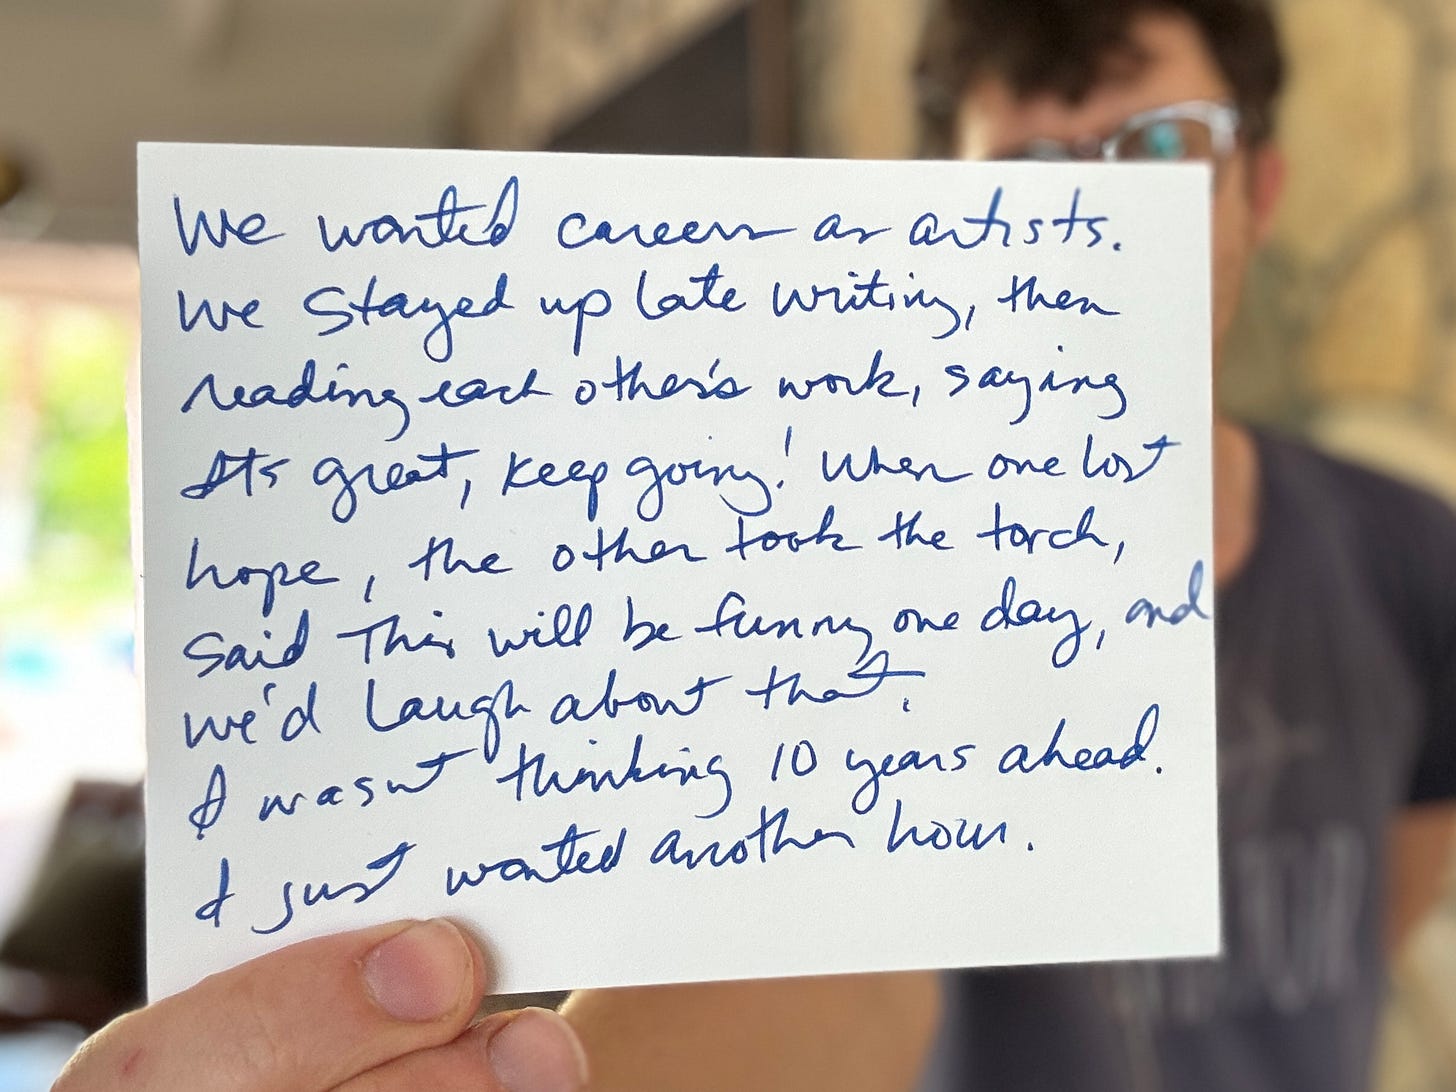 We wanted careers as artists.
We stayed up late writing, then
reading each other's work, saying
It's great, keep going! When one lost
hope, the other took the torch,
said This will be funny one day, and
we'd laugh about that.
I wasn't thinking 10 years ahead.
I just wanted another hour.